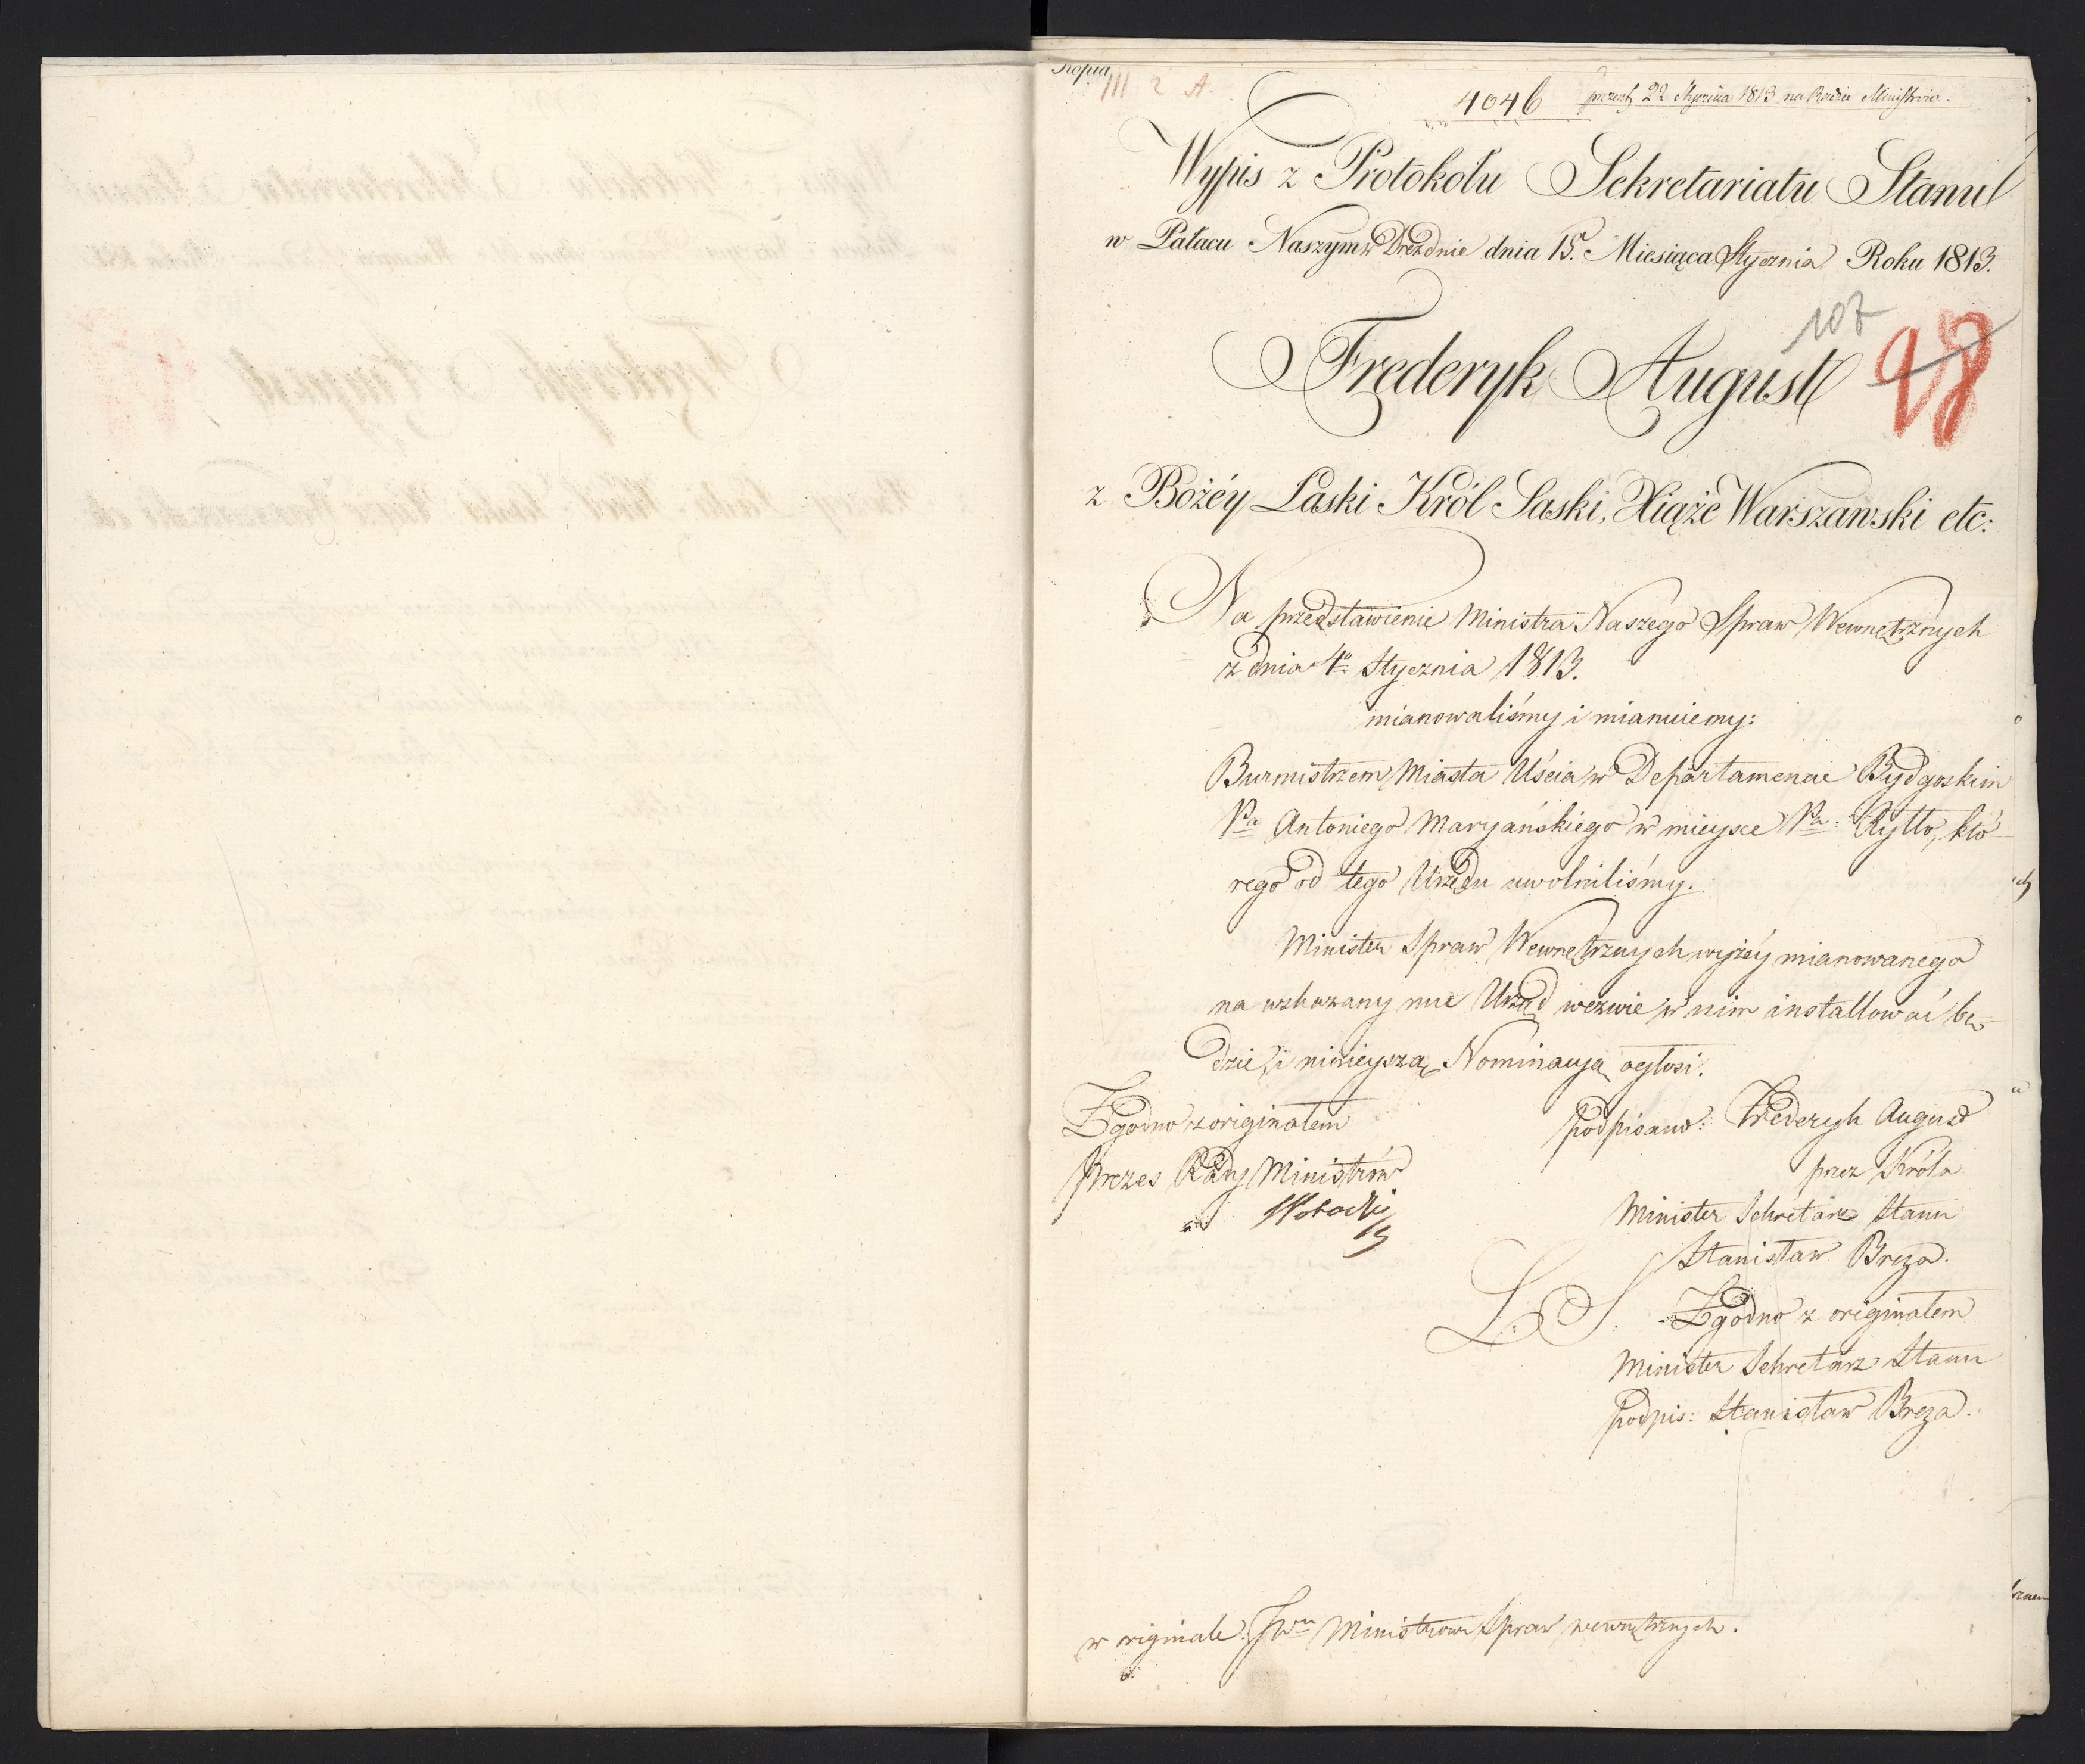 Kopia
III 2 A.
4046 prezent 22 Stycznia 1813 na Radzie Ministrów.
Wypis z Protokołu Sekretariatu Stanu
w Pałacu Naszym w Dreźdnie dnia 15. Miesiąca Stycznia Roku 1813.
107
Frederyk August 98
z Bożéy Łaski Król Saski, Xiąże Warszawski etc:
Na przedstawienie Ministra Naszego Spraw Wewnętrznych
z dnia 4º Stycznia 1813.
mianowaliśmy i mianuiemy:
Burmistrzem Miasta Uścia w Departamencie Bydgoskim
Pa Antoniego Maryańskiego w mieysce Pa Rytto, któ-
rego od tego Urzędu uwolniliśmy.
Minister Spraw Wewnętrznych wyżéy mianowanego
na wskazany mu Urząd wezwie, w nim installować bę-
dzie, i ninieyszą Nominacyą ogłosi.
Zgodno z originałem
Prezes Rady Ministrów
podpisano: Frederyk August
przez Króla
Minister Sekretarz Stanu
Stanisław Breza.
L. S. Zgodno z originałem
Minister Sekretarz Stanu
podpis: Stanisław Breza.
w originale: JWu Ministrowi Spraw wewnętrznych.